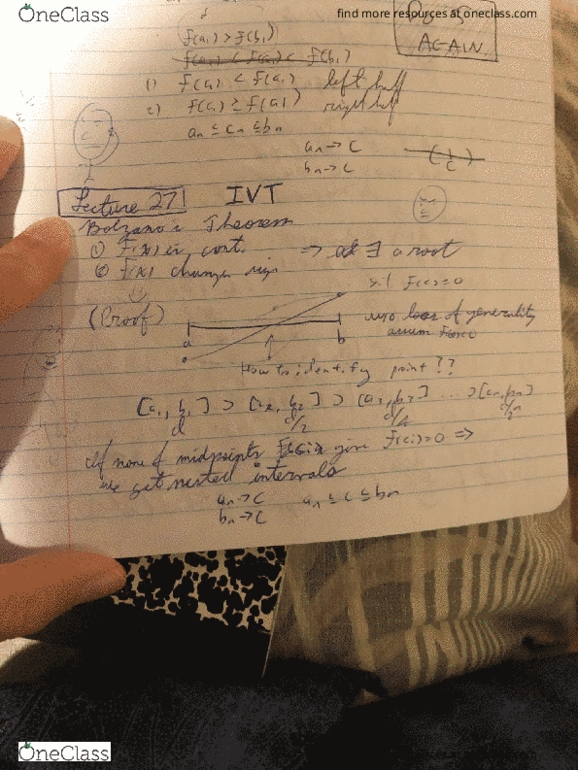 OneClass
find more resources at oneclass.com
f(a₁) > f(b₁)
AGAIN.
1) f(a₁) < f(a₁) left half
2) f(a₁) ≥ f(a1) right half
aₙ ≤ cₙ ≤ bₙ
aₙ → c
bₙ → c
Lecture 27 IVT
Bolzano's Theorem
① f(x) is cont. ⇒ ∃ a root
② f(x) changes sign s.t f(c)=0
(Proof) w/o loss of generality
a b assum
How to identify point ??
[a₁, b₁] ⊃ [a₂, b₂] ⊃ [a₃, b₃] ... ⊃ [aₙ, bₙ]
d d/2 d/4
If none of midpoints give f(c)=0 ⇒
we get nested intervals
aₙ → c aₙ ≤ c ≤ bₙ
bₙ → c
OneClass